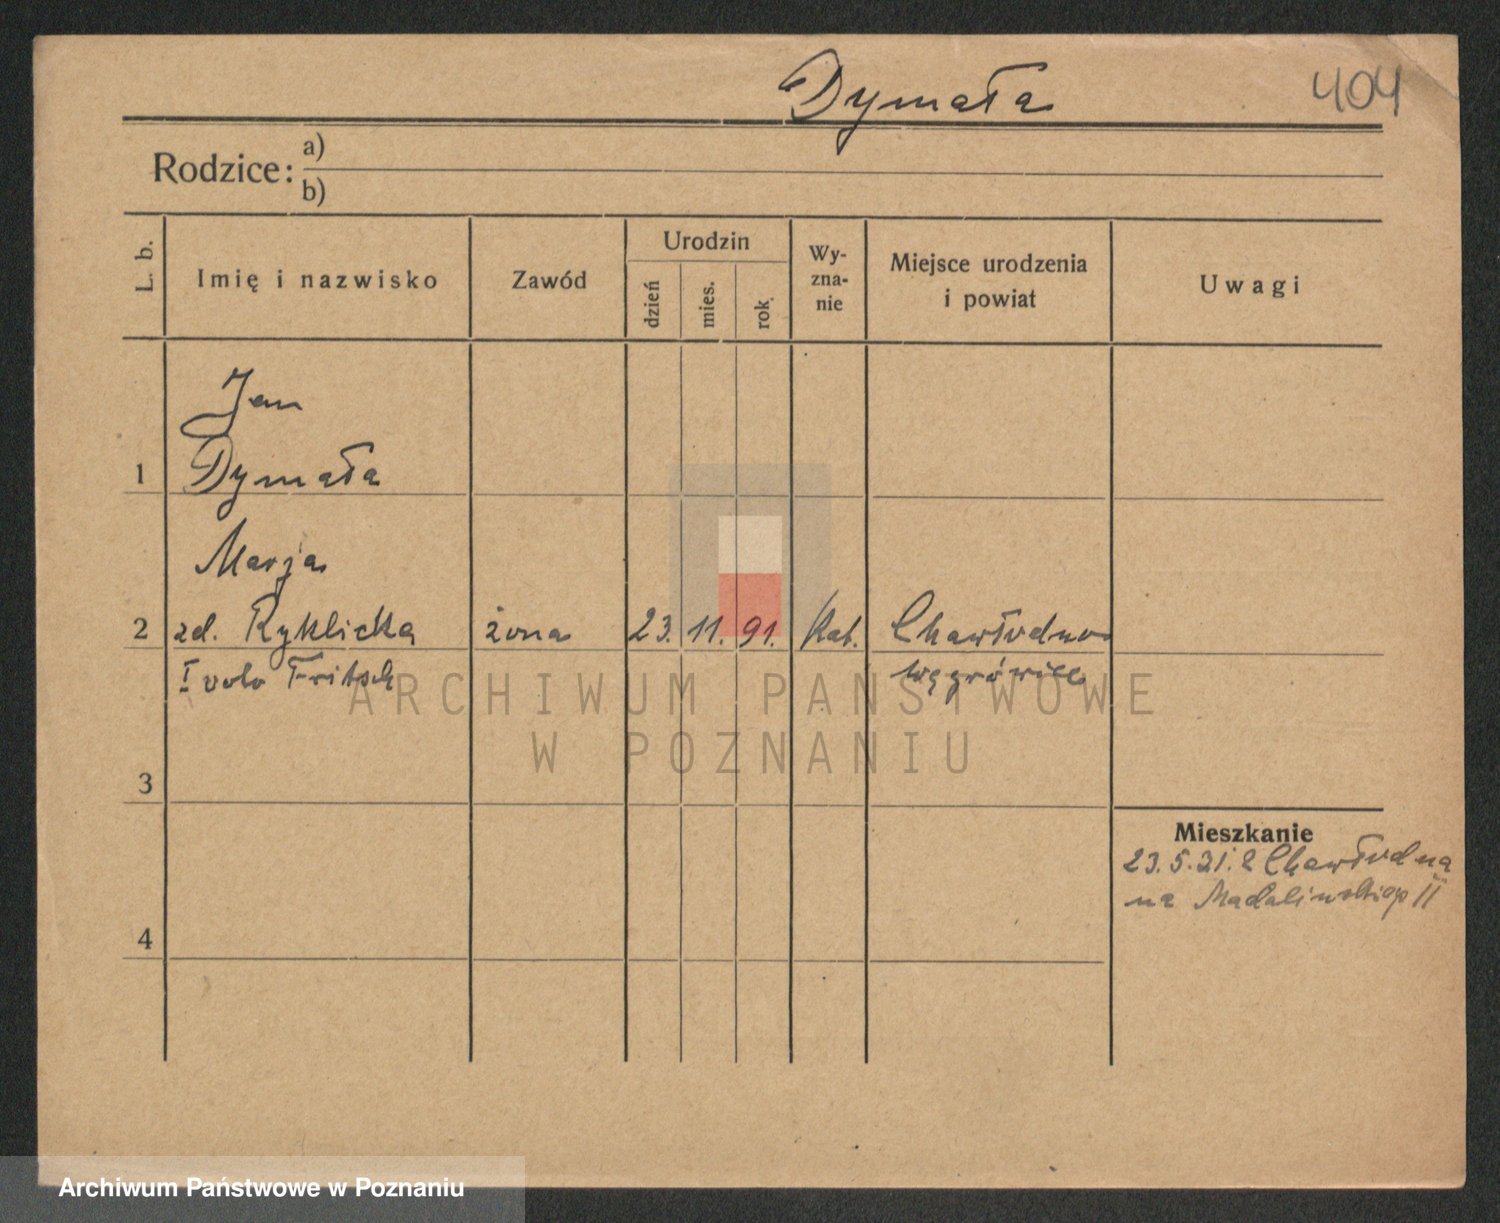 Dymała
404
Rodzice: a)
b)
L. b.
Imię i nazwisko
Zawód
Urodzin
dzień
mies.
rok
Wy-
zna-
nie
Miejsce urodzenia
i powiat
Uwagi
Jan
1 Dymała
Marja
2 zd. Ryklicka żona 23. 11. 91. Kat. Chawłodno
I volo Fritsch
Wągrówiec
ARCHIWUM PAŃSTWOWE
W POZNANIU
3
Mieszkanie
23.5.31. z Chawłodna
na Madalińskiego 11
4
Archiwum Państwowe w Poznaniu